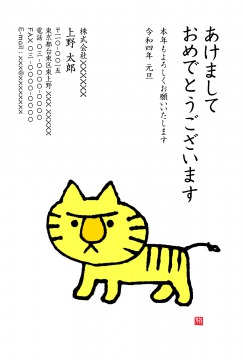 あけまして
おめでとうございます
本年もよろしくお願いいたします
令和四年 元旦
株式会社XXXXXXX
上野 太郎
〒一一〇-〇〇一五
東京都台東区東上野 XXX XXXXX
電話 〇三-〇〇〇〇-〇〇〇〇
FAX 〇三-〇〇〇〇-〇〇〇〇
E-mail : xxx@xxxxxxxxx